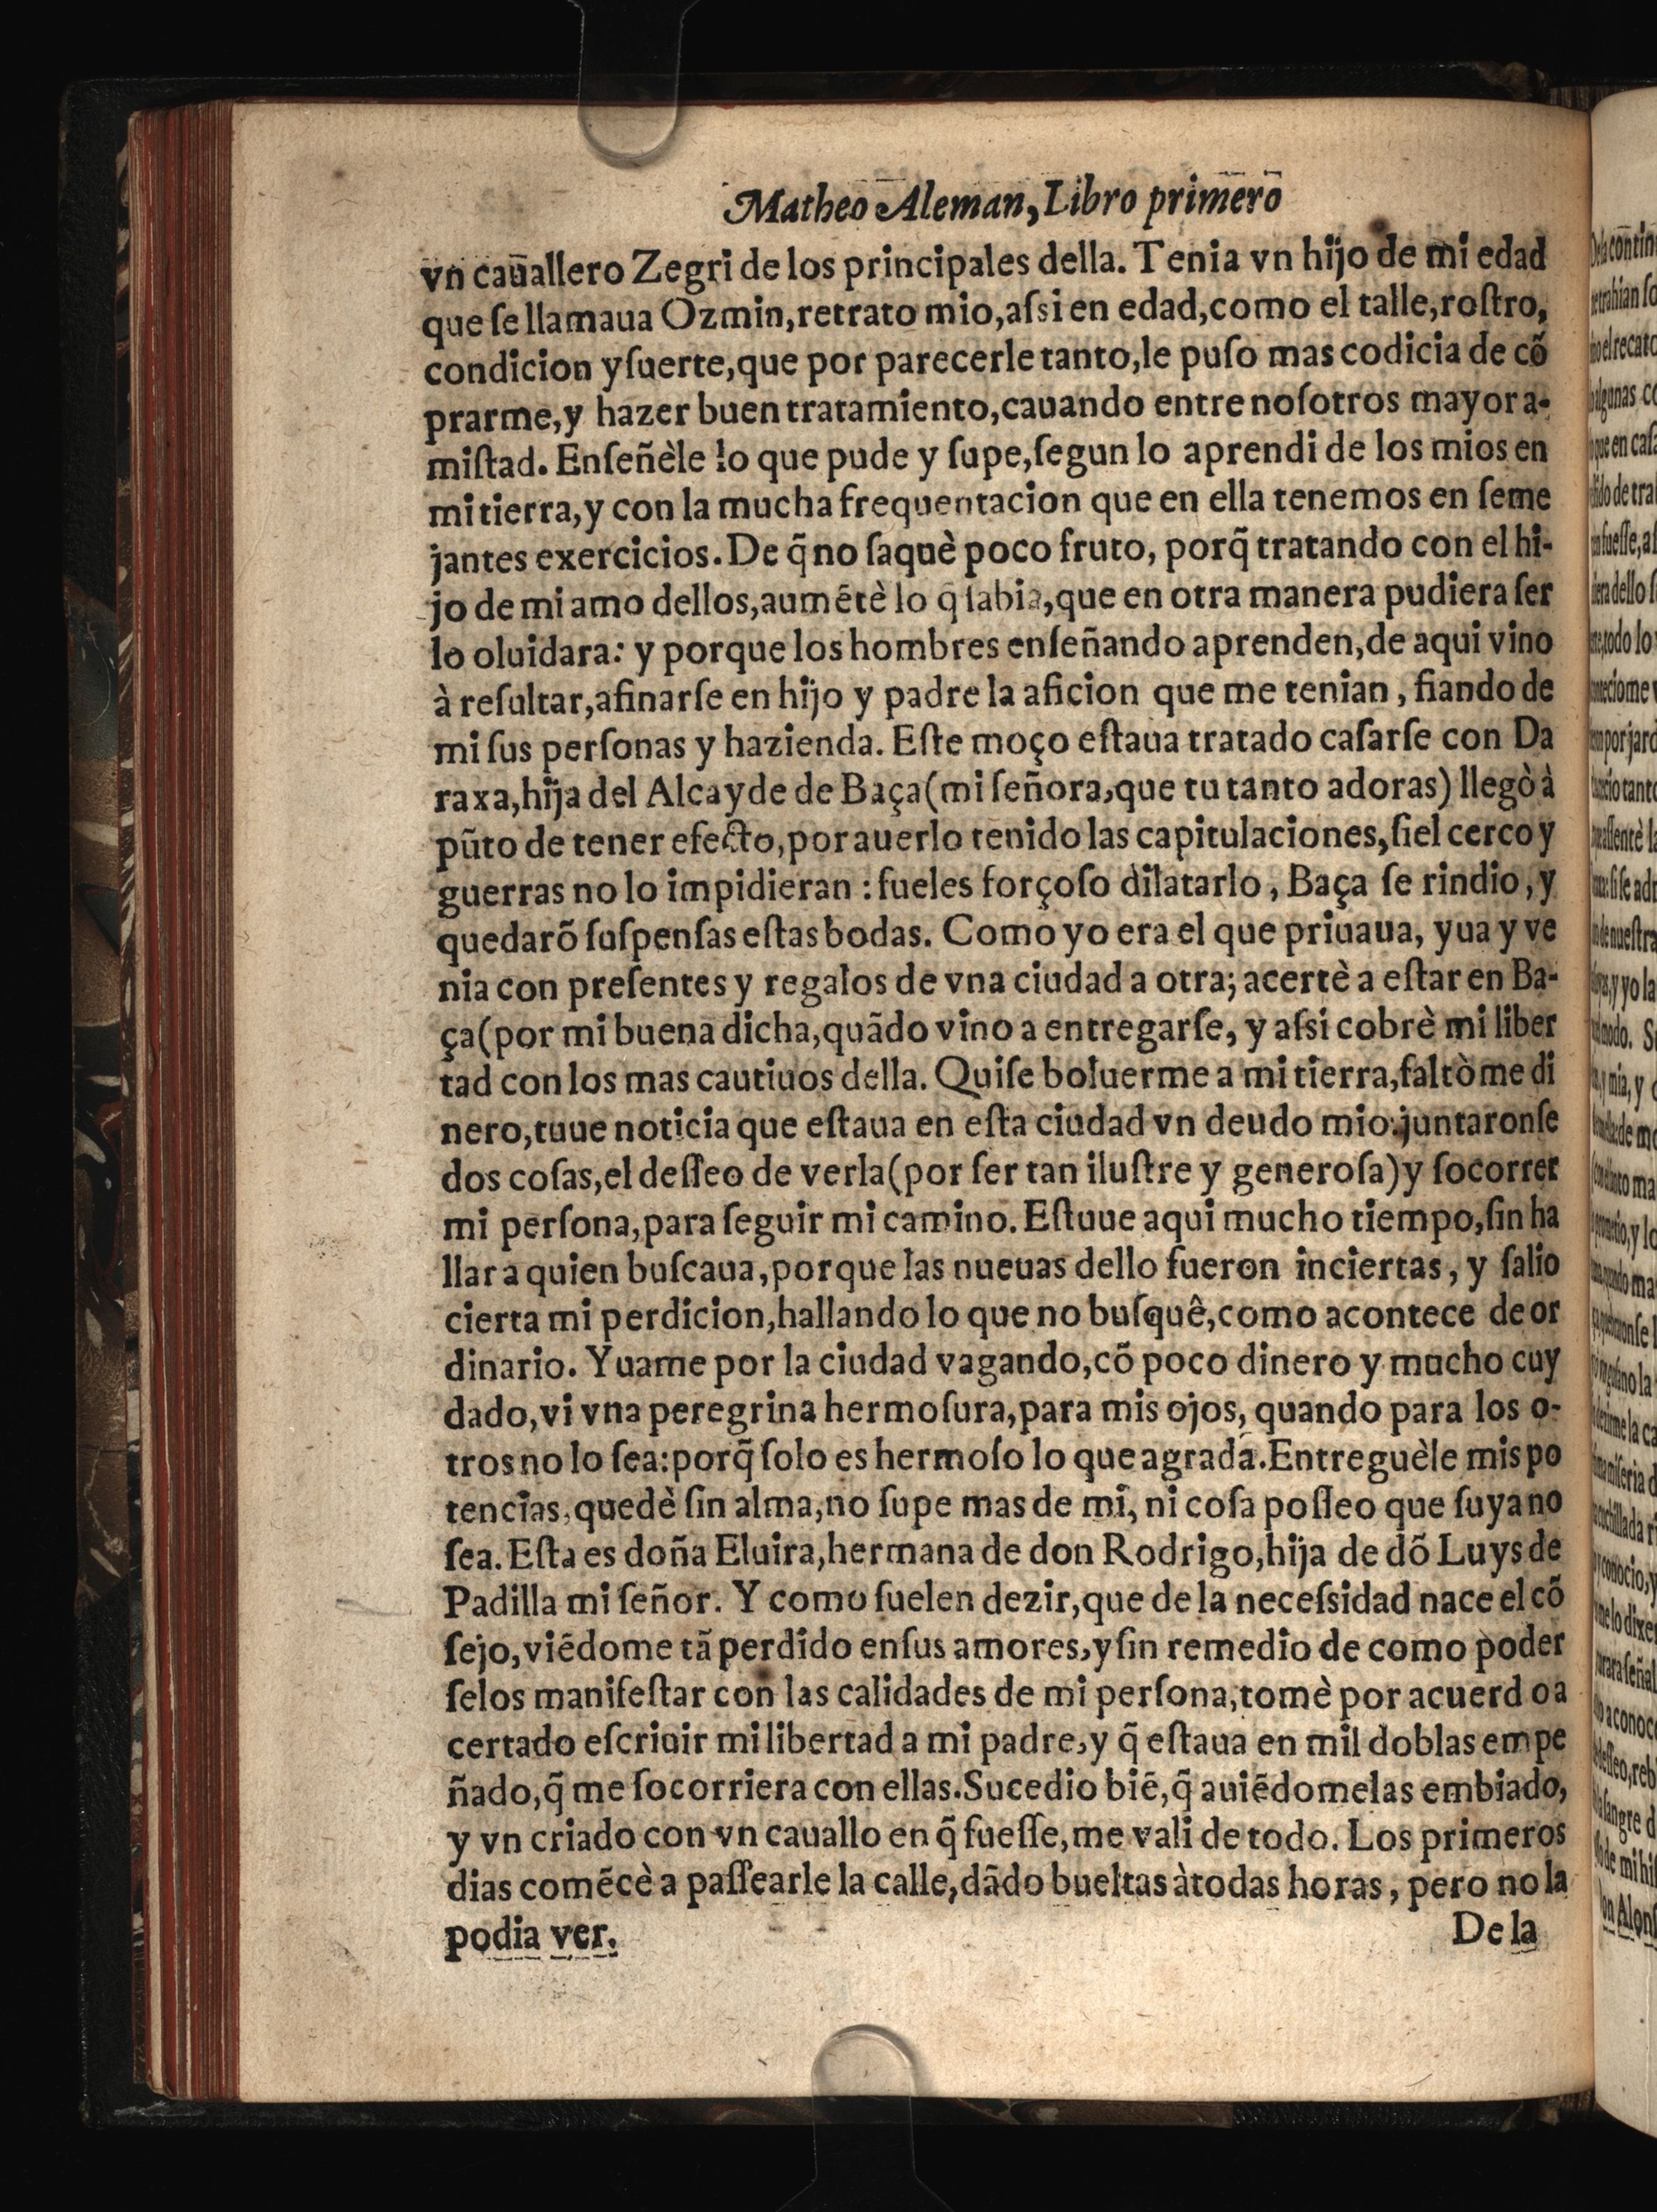 Matheo Aleman, Libro primero
vn cauallero Zegri de los principales della. Tenia vn hijo de mi edad
que ſe llamaua Ozmin, retrato mio, aſsi en edad, como el talle, roſtro,
condicion y ſuerte, que por parecerle tanto, le puſo mas codicia de cõ
prarme, y hazer buen tratamiento, cauando entre noſotros mayor a-
miſtad. Enſeñèle lo que pude y ſupe, ſegun lo aprendi de los mios en
mi tierra, y con la mucha frequentacion que en ella tenemos en ſeme
jantes exercicios. De q̃ no ſaquè poco fruto, porq̃ tratando con el hi-
jo de mi amo dellos, aumẽtè lo q̃ ſabia, que en otra manera pudiera ſer
lo oluidara: y porque los hombres enſeñando aprenden, de aqui vino
à reſultar, afinarſe en hijo y padre la aficion que me tenian, fiando de
mi ſus perſonas y hazienda. Eſte moço eſtaua tratado caſarſe con Da
raxa, hija del Alcayde de Baça (mi ſeñora, que tu tanto adoras) llegò à
pũto de tener efecto, por auerlo tenido las capitulaciones, ſi el cerco y
guerras no lo impidieran : fueles forçoſo dilatarlo, Baça ſe rindio, y
quedarõ ſuſpenſas eſtas bodas. Como yo era el que priuaua, yua y ve
nia con preſentes y regalos de vna ciudad a otra; acertè a eſtar en Ba-
ça (por mi buena dicha, quãdo vino a entregarſe, y aſsi cobrè mi liber
tad con los mas cautiuos della. Quiſe boluerme a mi tierra, faltòme di
nero, tuue noticia que eſtaua en eſta ciudad vn deudo mio: juntaronſe
dos coſas, el deſſeo de verla (por ſer tan iluſtre y generoſa) y ſocorrer
mi perſona, para ſeguir mi camino. Eſtuue aqui mucho tiempo, ſin ha
llar a quien buſcaua, porque las nueuas dello fueron inciertas, y ſalio
cierta mi perdicion, hallando lo que no buſquê, como acontece de or
dinario. Yuame por la ciudad vagando, cõ poco dinero y mucho cuy
dado, vi vna peregrina hermoſura, para mis ojos, quando para los o-
tros no lo ſea: porq̃ ſolo es hermoſo lo que agrada. Entreguèle mis po
tencias, quedè ſin alma, no ſupe mas de mi, ni coſa poſſeo que ſuya no
ſea. Eſta es doña Eluira, hermana de don Rodrigo, hija de dõ Luys de
Padilla mi ſeñor. Y como ſuelen dezir, que de la neceſsidad nace el cõ
ſejo, viẽdome tã perdido en ſus amores, y ſin remedio de como poder
ſelos manifeſtar con las calidades de mi perſona, tomè por acuerdo a
certado eſcriuir mi libertad a mi padre, y q̃ eſtaua en mil doblas empe
ñado, q̃ me ſocorriera con ellas. Sucedio biẽ, q̃ auiẽdomelas embiado,
y vn criado con vn cauallo en q̃ fueſſe, me vali de todo. Los primeros
dias comẽcè a paſſearle la calle, dãdo bueltas à todas horas, pero no la
podia ver.
De la